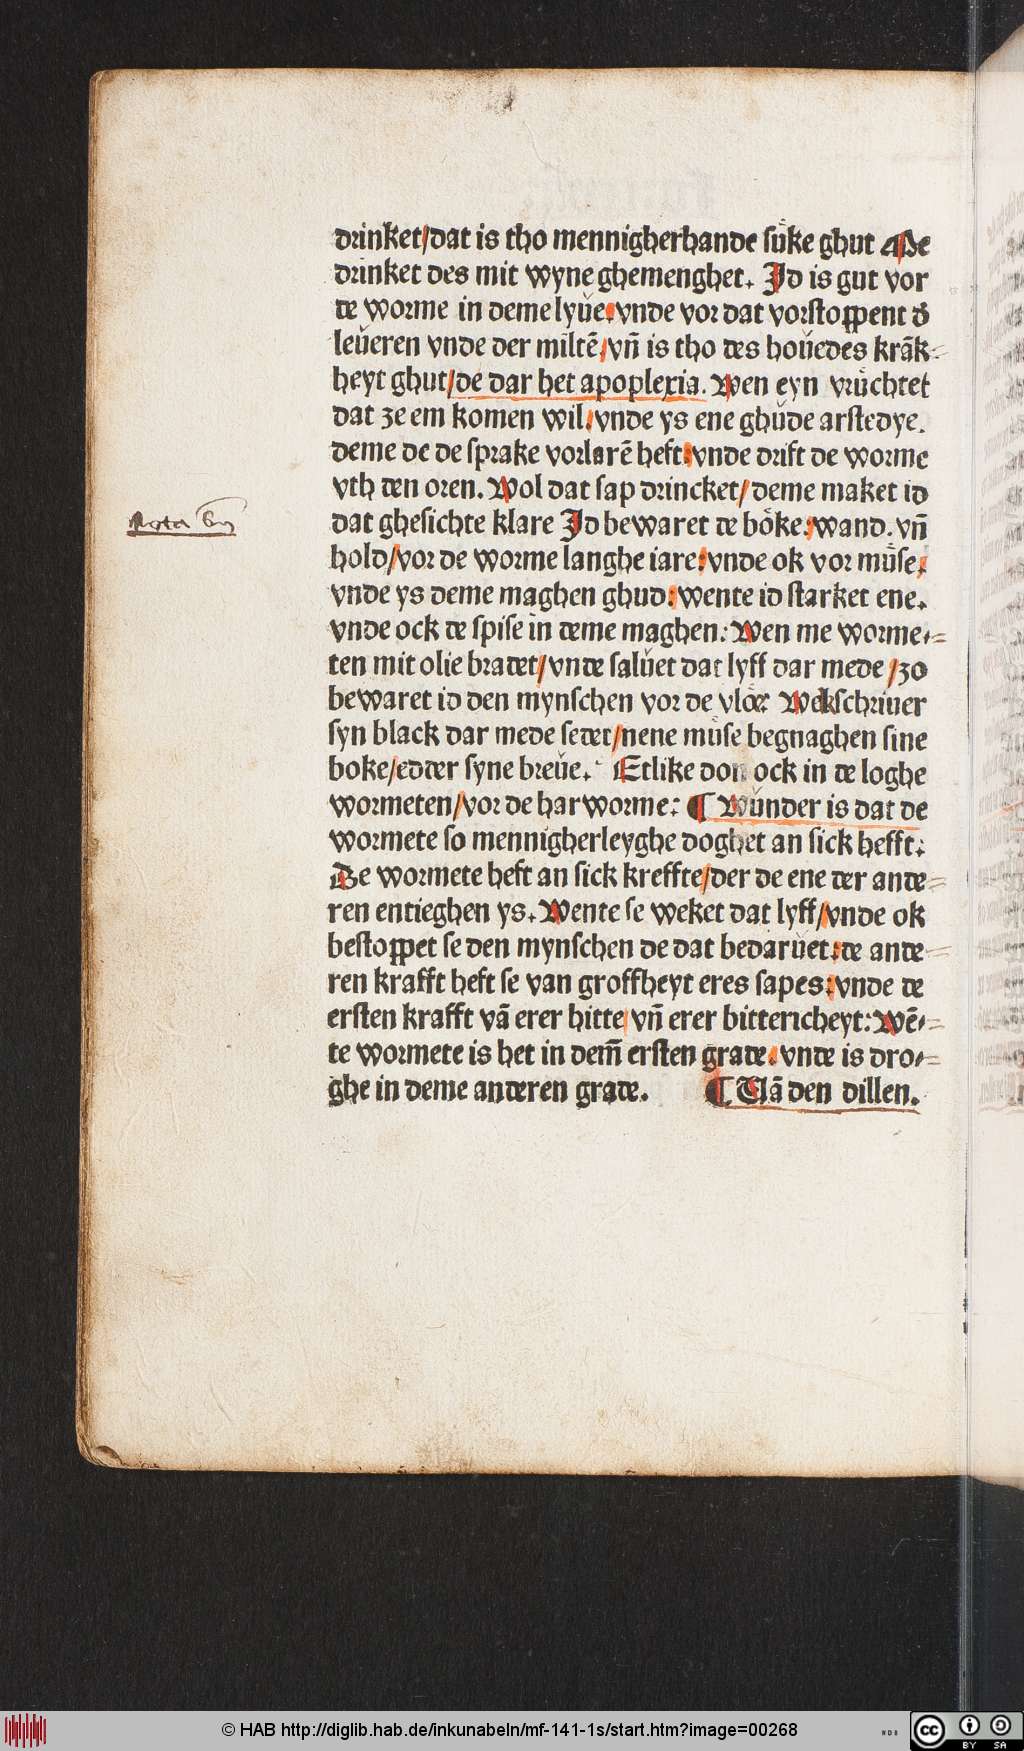 drinket/dat is tho mennigherhande sůke ghut Me
drinket des mit wyne ghemenghet. Jd is gut vor
de worme in deme lyůe: vnde vor dat vorstoppent d̕
leůeren vnde der miltē/vn̄ is tho des hoůedes krāk-
heyt ghut/de dar het apoplexia. Wen eyn vrůchtet
dat ze em komen wil: vnde ys ene ghůde arstedye.
deme de de sprake vorlarē heft: vnde drift de worme
vth den oren. Wol dat sap drincket/deme maket id
dat ghesichte klare Jd bewaret de bőke: wand. vn̄
hold/vor de worme langhe iare: vnde ok vor můse:
vnde ys deme maghen ghud: wente id starket ene.
vnde ock de spise in deme maghen: Wen me worme-
ten mit olie bradet/vnde salůet dat lyff dar mede/zo
bewaret id den mynschen vor de vlőe: Wekschriuer
syn black dar mede sedet/nene můse begnaghen sine
boke/edder syne breůe. Etlike don ock in de loghe
wormeten/vor de harworme: ¶ Wůnder is dat de
wormete so mennigherleyghe doghet an sick hefft:
De wormete heft an sick kreffte/der de ene der ande-
ren entieghen ys. Wente se weket dat lyff/vnde ok
bestoppet se den mynschen de dat bedarůet: de ande-
ren krafft heft se van groffheyt eres sapes: vnde de
ersten krafft vā erer hitte/vn̄ erer bittericheyt: Wē-
te wormete is het in dem̄ ersten grade: vnde is dro-
ghe in deme anderen grade. ¶ Uā den dillen.
Nota
© HAB http://diglib.hab.de/inkunabeln/mf-141-1s/start.htm?image=00268
WDB
cc BY SA